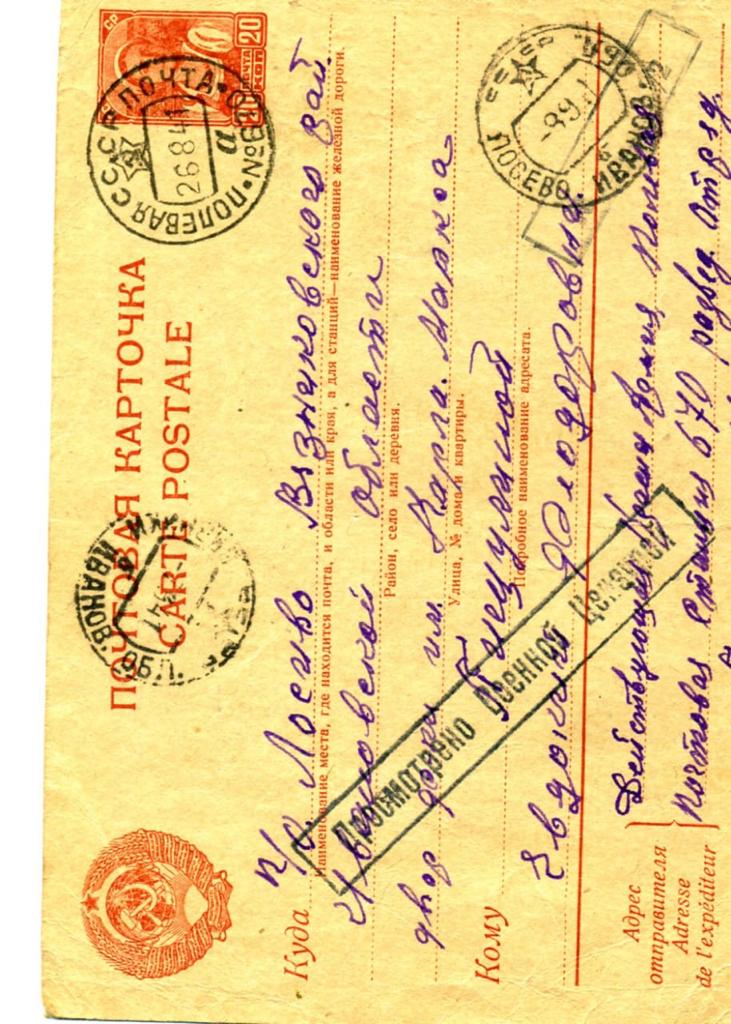 ПОЧТОВАЯ КАРТОЧКА
CARTE POSTALE
СССР
ПОЧТА
20
КОП
ПОЛЕВАЯ ПОЧТА СССР
26 8 41
а
ИВАНОВ. ОБЛ.
ЛОСЕВО ИВАНОВ. ОБЛ.
-8 9 41
Куда п/о Лосево Вязниковского рай.
Наименование места, где находится почта, и области или края, а для станций—наименование железной дороги.
Ивановской области
Район, село или деревня.
двор им. Карла. Маркса
Улица, № дома и квартиры.
Кому
Подробное наименование адресата.
Евдокии Федоровне.
Просмотрено Военной Цензурой
Адрес отправителя
Adresse de l'expéditeur
Действующая Армия Полевая
Почтовая Станция 670 развед отряд